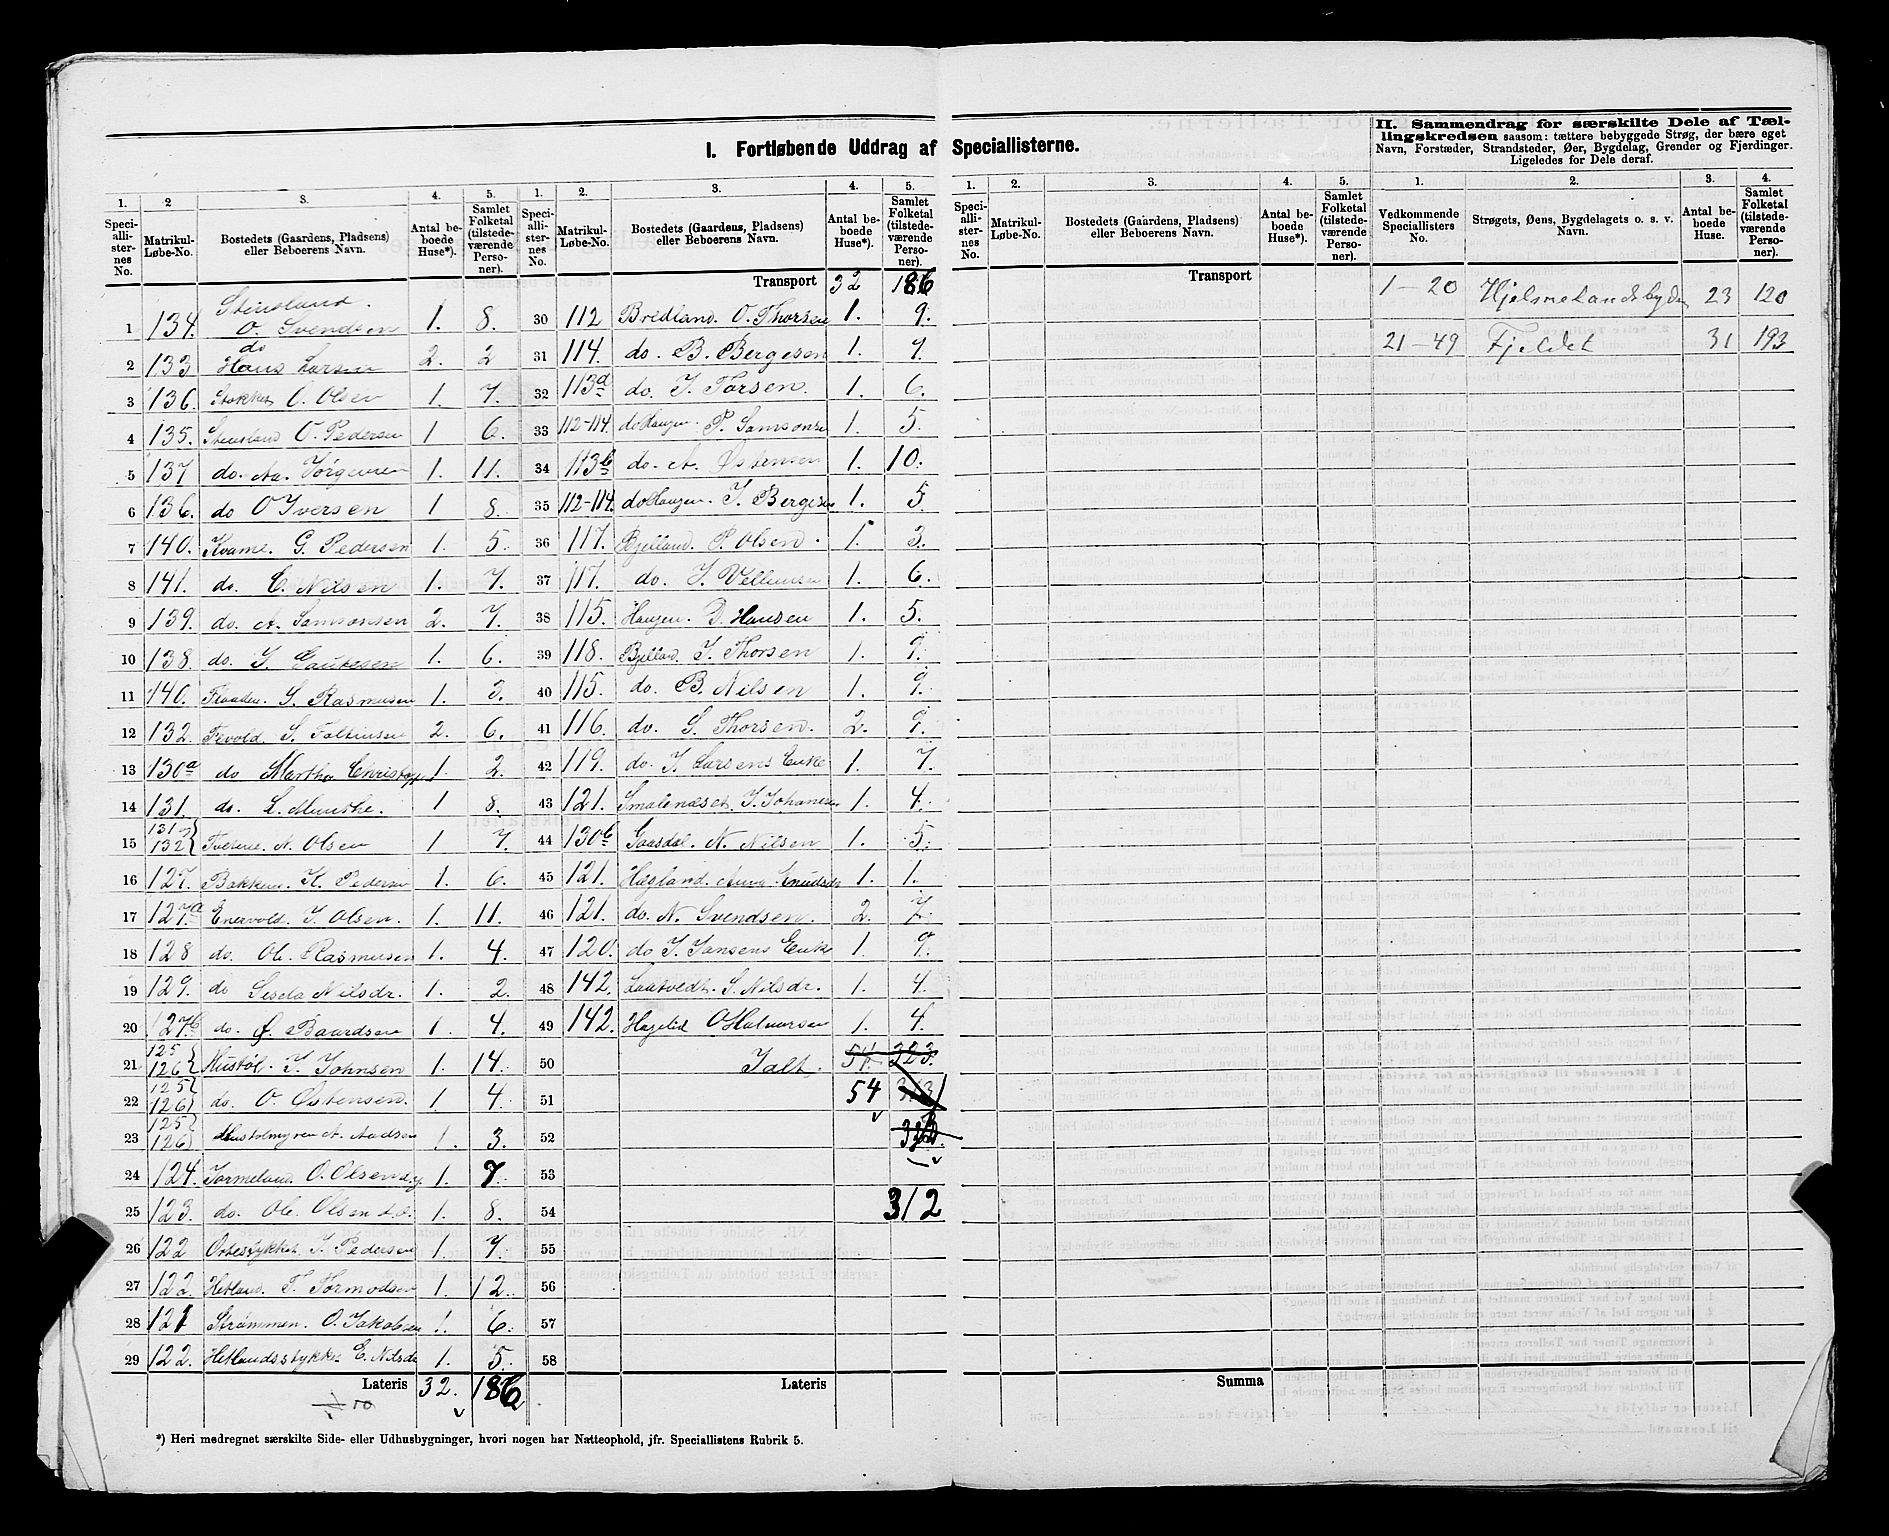 I. Fortløbende Uddrag af Speciallisterne.
II. Sammendrag for særskilte Dele af Tællingskredsen saasom: tættere bebyggede Strøg, der bære eget
Navn, Forstæder, Strandsteder, Øer, Bygdelag, Grender og Fjerdinger.
Ligeledes for Dele deraf.
1. 2 3. 4. 5.
Speciallisternes No. Matrikul-Løbe-No. Bostedets (Gaardens, Pladsens) eller Beboerens Navn. Antal beboede Huse*). Samlet Folketal (tilstedeværende Personer).
1 134. Steinsland. O. Svendsen 1. 8.
2 133 do Hans Larsen 2. 2
3 136. Stokket O. Olsen 1. 7.
4 135. Steinsland O. Pedersen 1 6.
5 137 do. Aa. Jørgensen 1. 11.
6 136. do O Iversen 1 8.
7 140. Kvame. G. Pedersen 1. 5.
8 141. do. C. Nilsen 1. 7.
9 139. do. A. Samsonsen 2. 7.
10 138. do. I. Gautesen 1. 6.
11 140. S. Rasmusen 1. 3.
12 132. Tevold. S. 2. 6.
13 130a do Martha 1. 2.
14 131. do. L. Munthe. 1 8.
15 131 132 N. Olsen 1 7.
16 127. Bakken. K. Pedersen 1. 6.
17 127.a Enervold. I. Olsen. 1. 11.
18 128 do. Ole. Rasmusen 1. 4.
19 129. do Sisela Nilsdr. 1. 2.
20 127.b do. Baardsen 1. 4.
21 125 126 Mustøl. I. Johnsen 1. 14.
22 125 126 do. O. Østensen. 1. 4.
23 125 126 Mustølmyren A. Aadsen 1. 3.
24 124. Tormeland. O. Olsen d.y 1. 7.
25 123. do. Ole. Olsen 1. 8.
26 122 I. Pedersen 1. 7.
27 122. Hetland. T. Tormodsen 1. 12.
28 121 Strømmen. O. Jakobsen 1. 6.
29 122. Hetlandsstykket E. Nilsdr 1. 5.
Lateris 32. 186
1. 2. 3. 4. 5.
Speciallisternes No. Matrikul-Løbe-No. Bostedets (Gaardens, Pladsens) eller Beboerens Navn. Antal beboede Huse*). Samlet Folketal (tilstedeværende Personer).
Transport 32 186
30 112 Bredland. O. Thorsen 1. 9.
31 114. do. B. Bergesen 1. 7.
32 113a do. I. Torsen. 1. 6.
33 112-114. do Haugen. P. Samsonsen 1. 5.
34 113b do. A. Østensen 1. 10.
35 112-114. do Haugen. I. Bergesen 1. 5.
36 117. Bjelland. P. Olsen. 1. 3.
37 117. do. I. Vellumsen 1. 6.
38 115. Haugen. Hansen 1. 5.
39 118. Bjelland. I. Thorsen 1. 9.
40 115. do. B. Nilsen 1. 9.
41 116. do. S. Thorsen. 2. 9.
42 119. do. I. Larsens Enke 1. 7.
43 121. Smalenæset I. Johannesen 1. 4.
44 130b Gaasdal. N. Nilsen 1. 5.
45 121. Hægland. Anna Knudsdr 1. 1.
46 121. do. N. Svendsen. 2. 7.
47 120. do I. Jansens Enke 1. 9.
48 142. Laatvedt. S. Nilsdr. 1. 4.
49 142. Hagelid O Halvorsen 1. 4.
50 Ialt. 54. 323.
51 54
52
53
54 312
55
56
57
58
Lateris
1. 2. 3. 4. 5.
Speciallisternes No. Matrikul-Løbe-No. Bostedets (Gaardens, Pladsens) eller Beboerens Navn. Antal beboede Huse*). Samlet Folketal (tilstedeværende Personer).
Transport
Summa
1. 2. 3. 4.
Vedkommende Speciallisters No. Strøgets, Øens, Bygdelagets o. s. v. Navn. Antal beboede Huse. Samlet Folketal (tilstedeværende Personer).
1-20 Hjelmelandsbygden 23 120
21-49 Fjeldet 31 193
*) Heri medregnet særskilte Side- eller Udhusbygninger, hvori nogen har Natteophold, jfr. Speciallistens Rubrik 5.